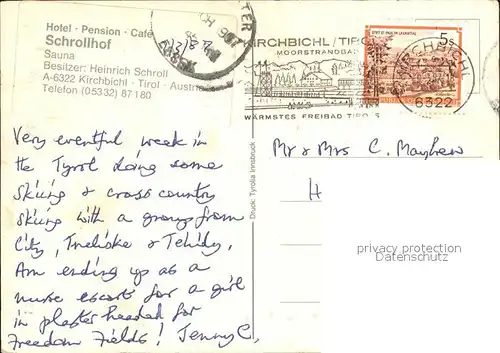 Hotel · Pension · Café
Schrollhof
Sauna
Besitzer: Heinrich Schroll
A-6322 Kirchbichl · Tirol · Austria
Telefon (0 53 32) 87 1 80
KIRCHBICHL / TIROL
MOORSTRANDBAD
WÄRMSTES FREIBAD TIROLS
5s
KIRCHBICHL
6322
Very eventful week in
the Tyrol doing some
Skiing & cross country
skiing with a group from
City, & Tehidy,
Am ending up as a
nurse escort for a girl
in plaster headed for
Freedom Fields! Jenny C,
Druck: Tyrolia Innsbruck
Mr & Mrs C. Mayhew
H
privacy protection
Datenschutz